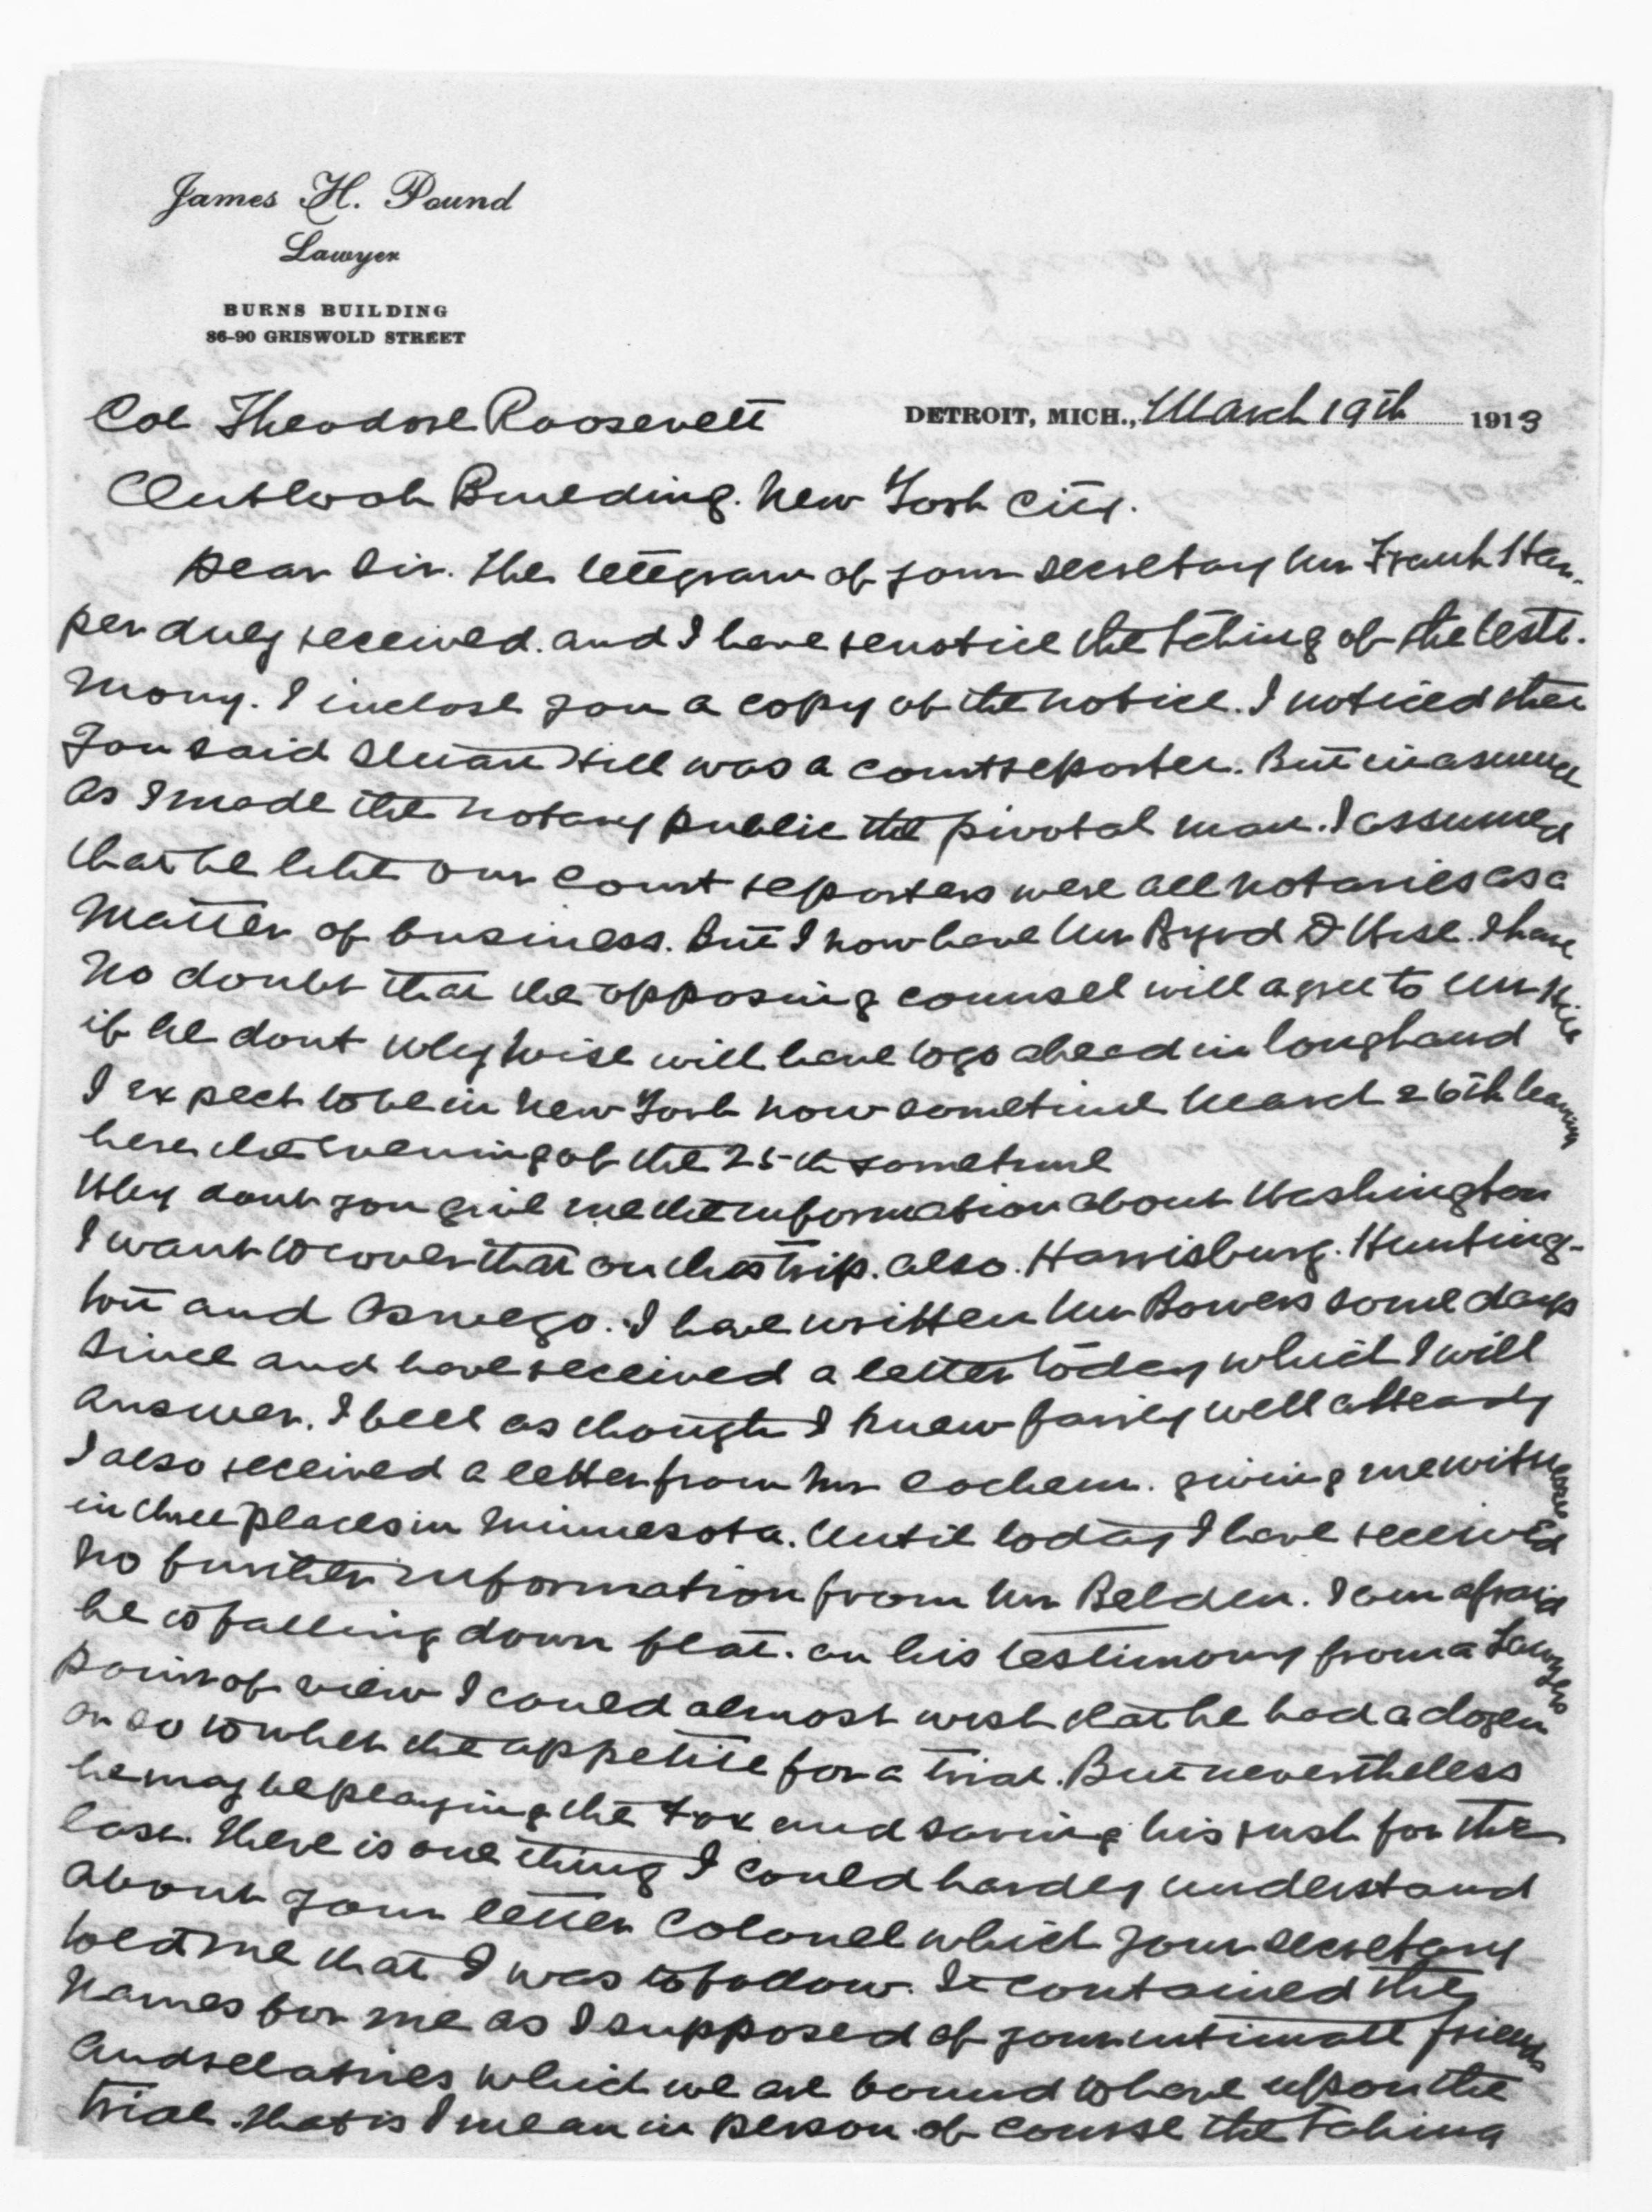 James H. Pound
Lawyer
BURNS BUILDING
86-90 GRISWOLD STREET
DETROIT, MICH., March 19th 1913
Col Theodore Roosevelt
Outlook Building. New York City.
Dear Sir. The telegram of your secretary Mr Frank Har-
per duly received. and I have renotice the taking of the testi-
mony. I inclose you a copy of the notice. I noticed that
you said was a court reporter. But inasmuch
as I made the notary public the pivotal man. I assumed
that he like our court reporters were all notaries as a
matter of business. But I now have Mr Byrd D Wise. I have
no doubt that the opposing counsel will agree to Mr
if he dont why Wise will have to go ahead in longhand
I expect to be in New York now sometime March 26th leaving
here the evening of the 25th sometime
Why dont you give me the information about Washington
I want to cover that on this trip. also. Harrisburg. Hunting-
ton and Oswego. I have written Mr Bowers some days
since and have received a letter today which I will
answer. I feel as though I knew fairly well already
I also received a letter from Mr Cochem. giving me witnesses
in three places in Minnesota. Until today I have received
no further information from Mr Belden. I am afraid
he is falling down flat. on his testimony from a Lawyers
point of view I could almost wish that he had a dozen
or so to whet the appetite for a trial. But nevertheless
he may be playing the fox and saving his rush for the
last. There is one thing I could hardly understand
about your letter Colonel which your secretary
told me that I was to follow. It contained the
names for me as I supposed of your intimate friends
and relatives which we are bound to have upon the
trial. that is I mean in person. of course the taking